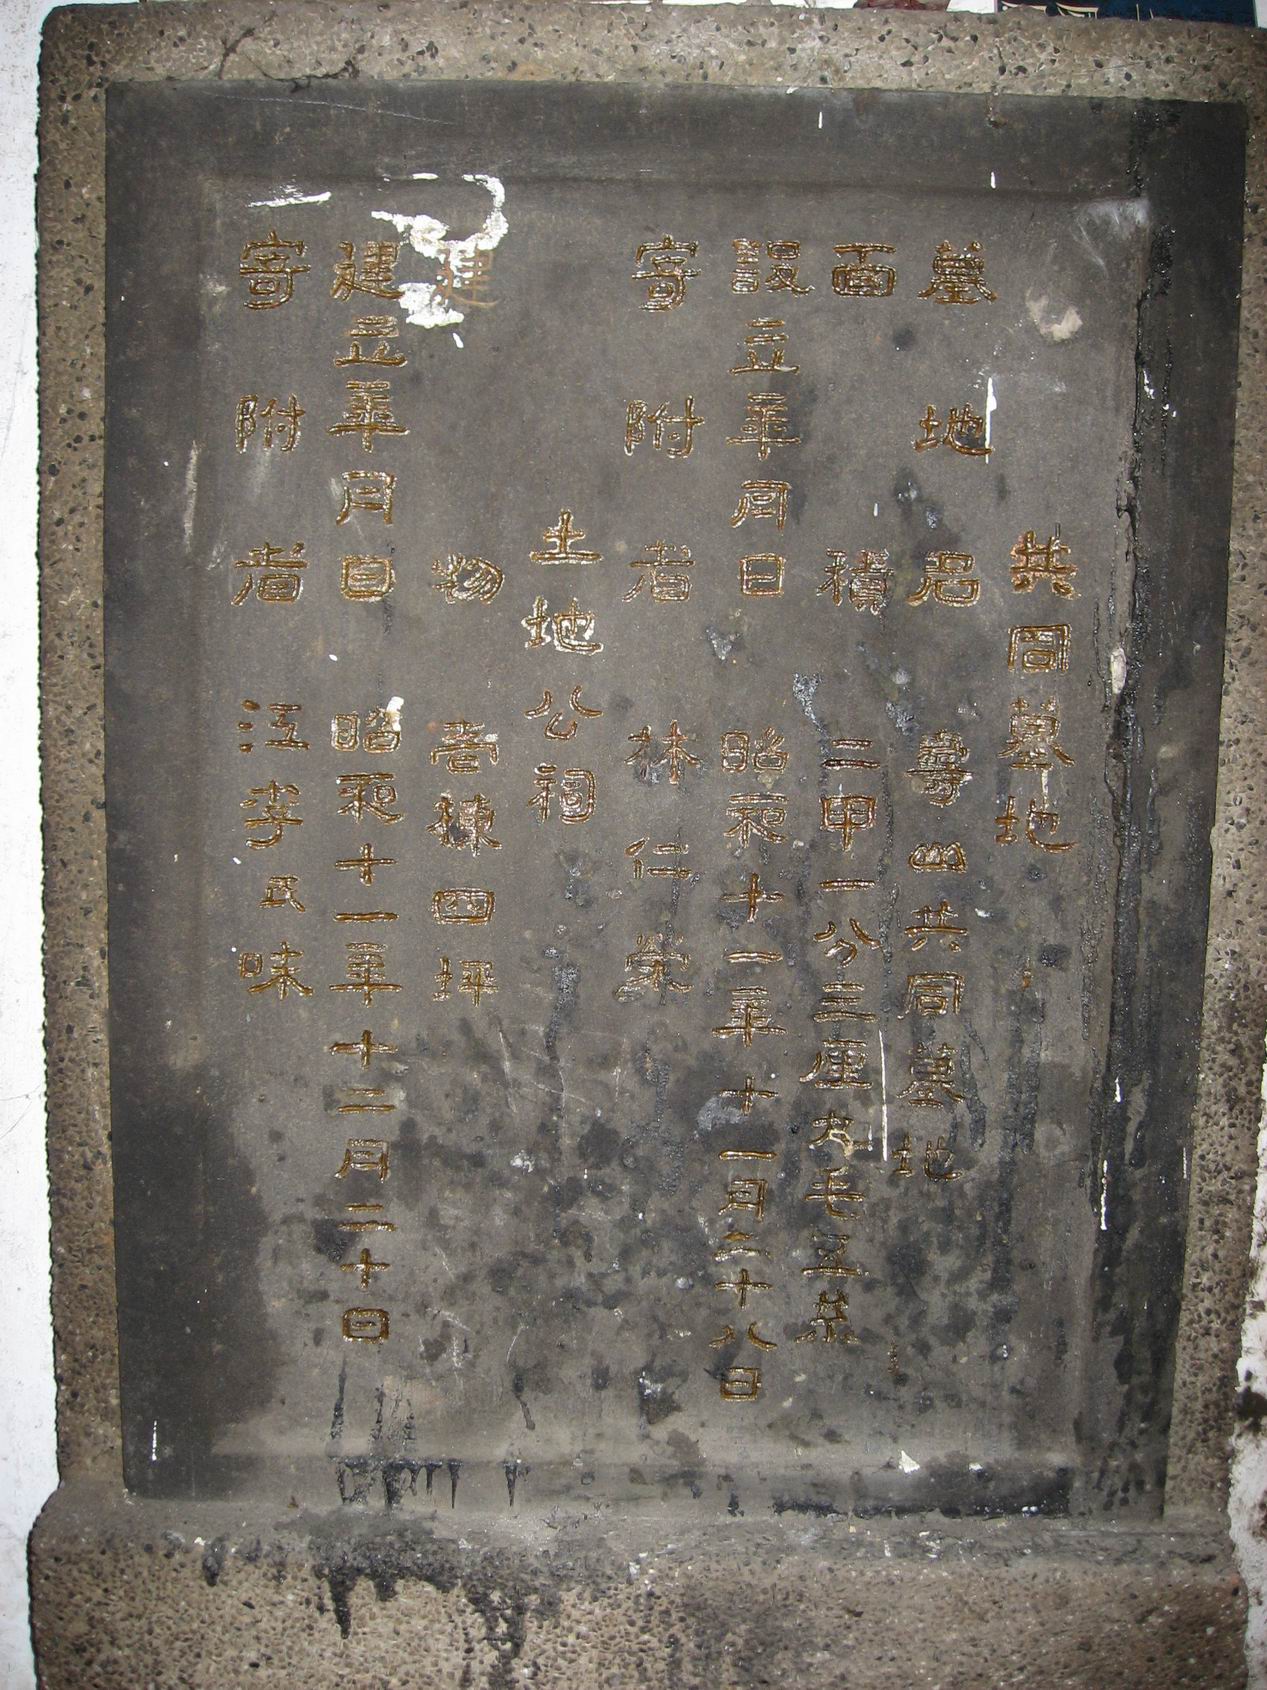 共同墓地
墓地名 壽山共同墓地
面積 二甲一分三厘九毛五糸
設立年月日 昭和十一年十一月二十八日
寄附者 林仁榮
土地公祠
建物 壹棟四坪
建立年月日 昭和十一年十二月二十日
寄附者 江李氏味